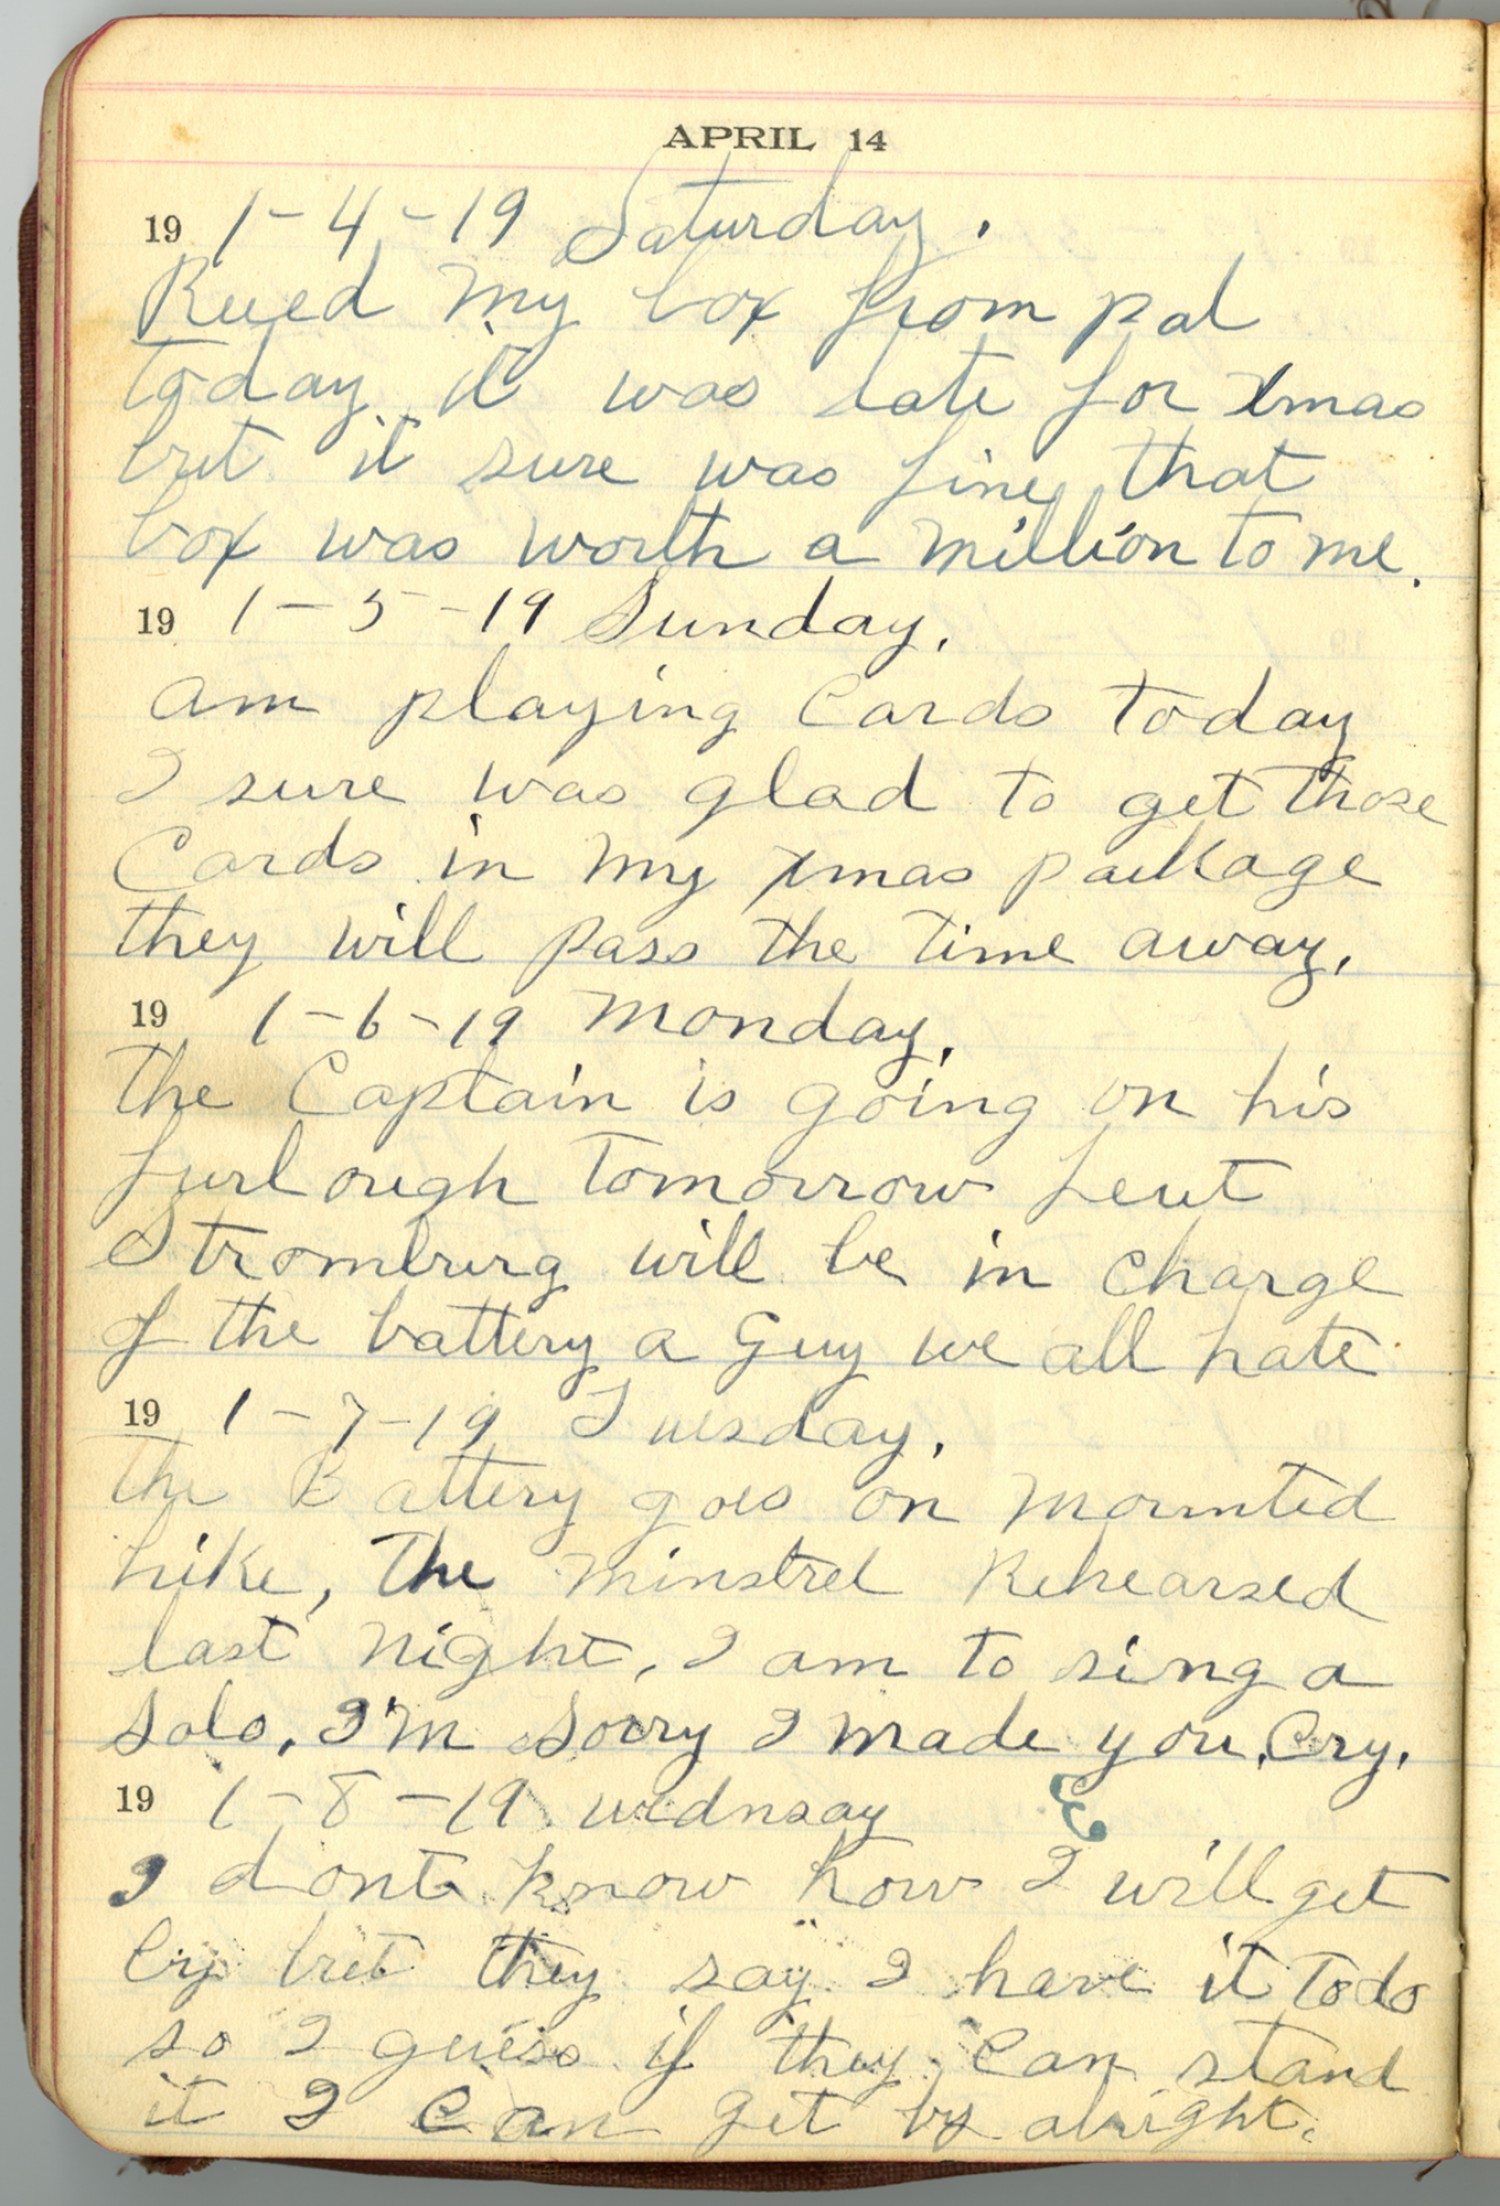 APRIL 14
19 1-4-19 Saturday.
Recd my box from pal
today it was late for Xmas
but it sure was fine that
box was worth a million to me.
19 1-5-19 Sunday.
am playing Cards today
I sure was glad to get those
Cards in my xmas package
they will pass the time away.
19 1-6-19 Monday.
the Captain is going on his
furlough tomorrow Leut
Stromburg will be in charge
of the battery a Guy we all hate
19 1-7-19 Tuesday.
The Battery goes on mounted
hike, The minstrel Rehearsed
last night, I am to sing a
solo, I'm sorry I made you, Cry.
19 1-8-19 wednsay
I dont know how I will get
by but they say I have it to do
so I guess if they can stand
it I can get by alright.